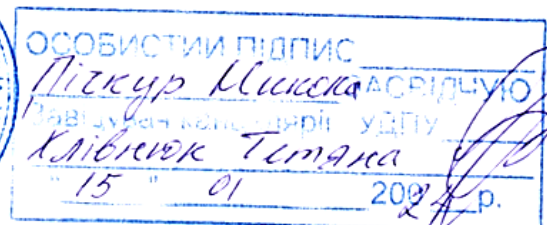 ОСОБИСТИЙ ПІДПИС
Пічкур Микола ЗАСВІДЧУЮ
Завідувач канцелярії УДПУ
Хлівнюк Тетяна
"15" 01 2024 р.